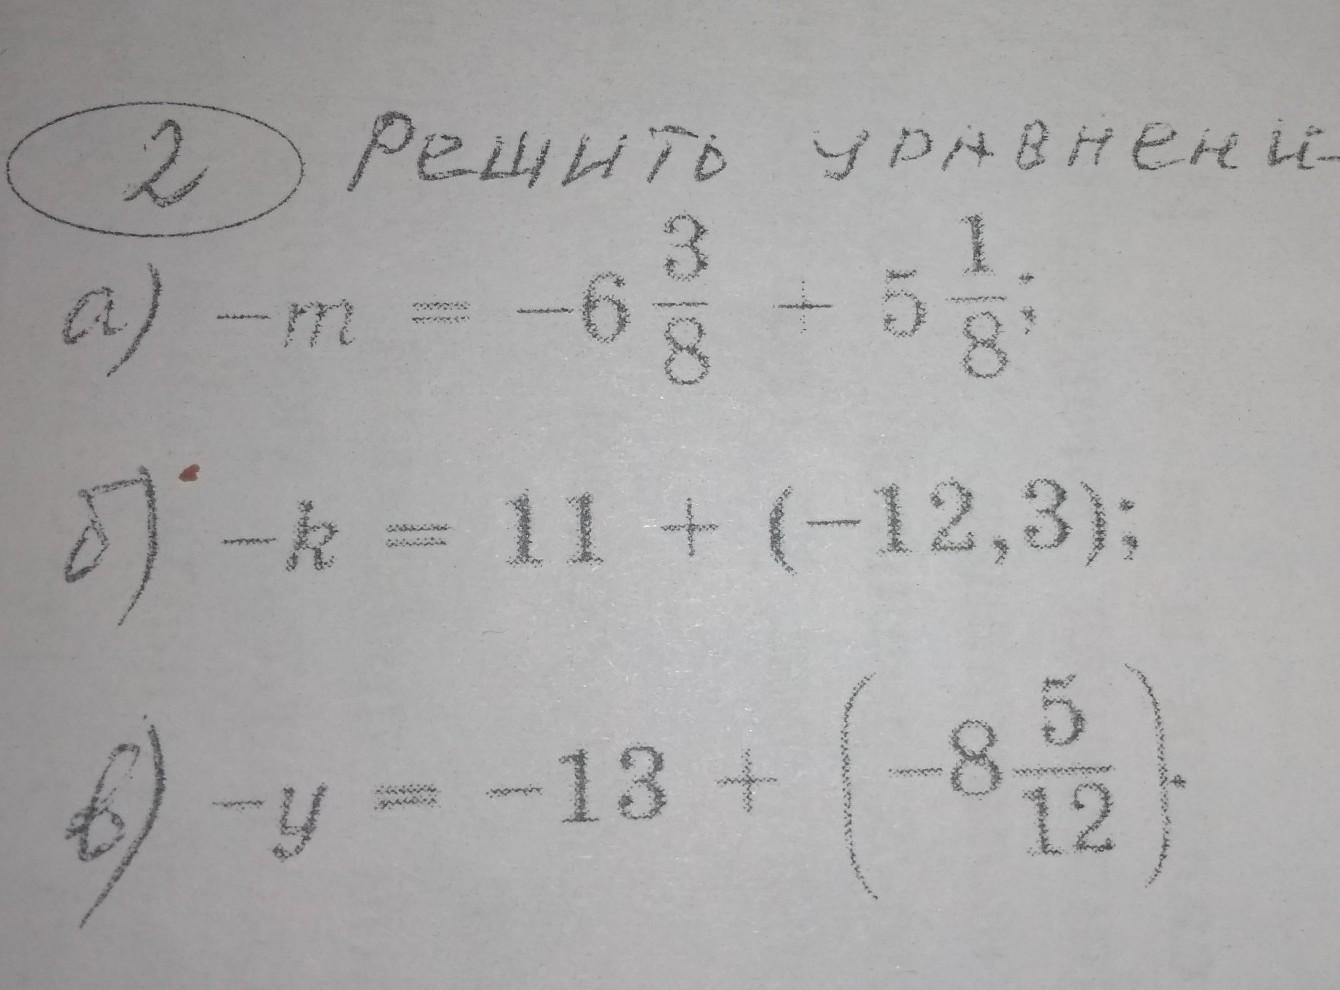 2 Решить уравнени-
а) -m = -6 3/8 + 5 1/8;
б) -k = 11 + (-12,3);
в) -y = -13 + (-8 5/12).